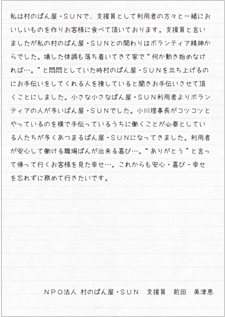 私は村のぱん屋・ＳＵＮで、支援員として利用者の方々と一緒にお
いしいものを作りお客様に食べて頂いております。支援員と言い
ましたが私の村のぱん屋・ＳＵＮとの関わりはボランティア精神か
らでした。壊した体調も落ち着いてきて家で“何か動き始めなけ
れば…。”と悶問としていた時村のぱん屋・ＳＵＮを立ち上げるの
にお手伝いをしてくれる人を捜していると聞きお手伝いさせて頂
くことにしました。小さな小さなぱん屋・ＳＵＮ利用者よりボラン
ティアの人が多いぱん屋・ＳＵＮでした。小川理事長がコツコツと
やっているのを横で手伝っているうちに働くことが必要としてい
る人たちが多くあつまるぱん屋・ＳＵＮになってきました。利用者
が安心して働ける職場ぱんが出来る喜び…。“ありがとう”と言っ
て帰って行くお客様を見た幸せ…。これからも安心・喜び・幸せ
を忘れずに務めて行きたいです。
ＮＰＯ法人 村のぱん屋・ＳＵＮ　支援員　前田　美津恵